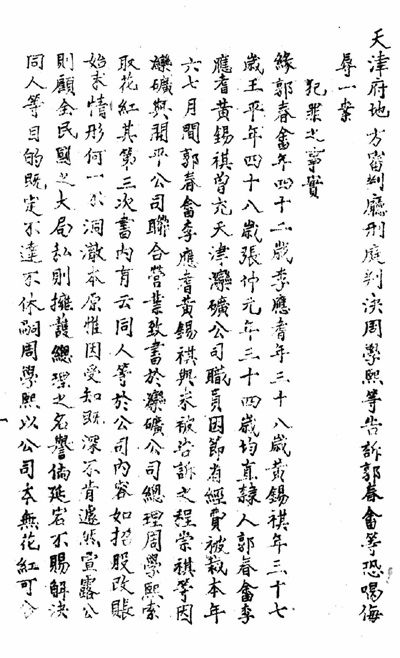 天津府地方審判廳刑庭判決周學熙等告訴郭春畬等恐喝侮
辱一案
犯罪之事實
緣郭春畬年四十二歲李應耆年三十八歲黃錫祺年三十七
歲王平年四十八歲張坤元年三十四歲均直隸人郭春畬李
應耆黃錫祺曾充天津灤礦公司職員因節省經費被裁本年
六七月間郭春畬李應耆黃錫祺與未被告訴之程崇祺等因
灤礦與開平公司聯合營業致書於灤礦公司總理周學熙索
取花紅其第三次書內有云同人等於公司內容如招股改賬
始末情形何一不洞澈本原惟因受知既深不肯遽然宣露公
則顧全民國之大局私則擁護總理之名譽倘延宕不賜解決
同人等目的既定不達不休嗣周學熙以公司本無花紅可分